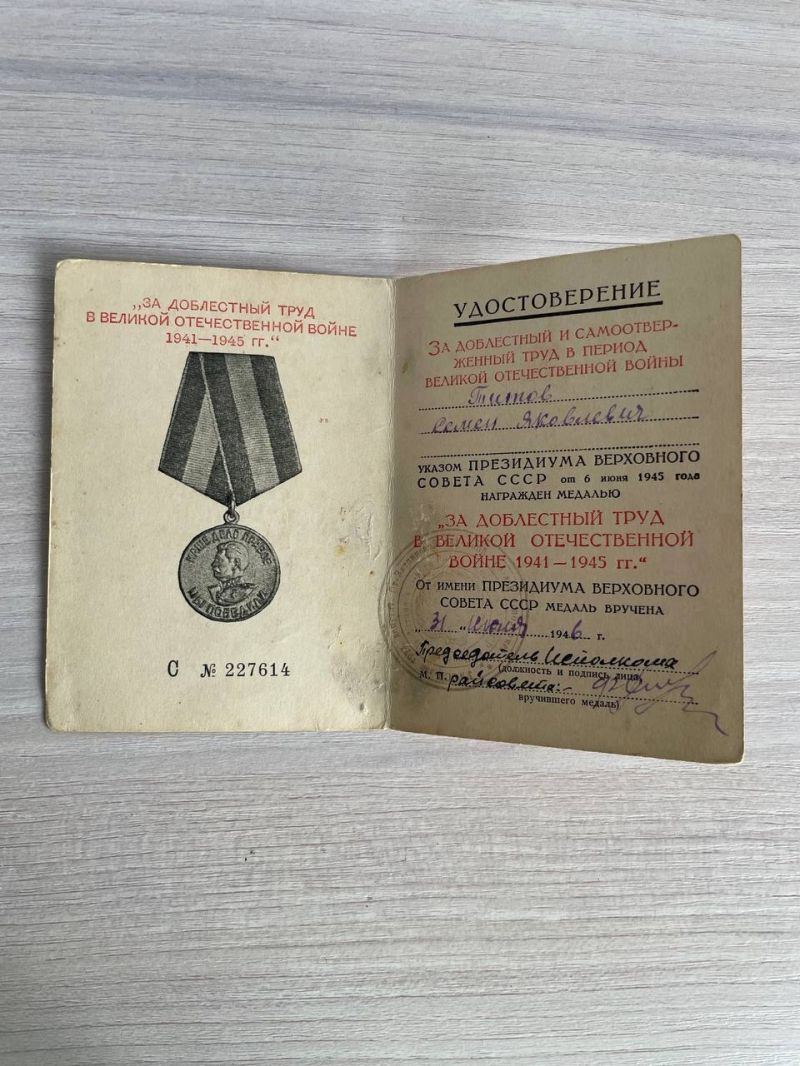 „ЗА ДОБЛЕСТНЫЙ ТРУД
В ВЕЛИКОЙ ОТЕЧЕСТВЕННОЙ ВОЙНЕ
1941—1945 гг.“
НАШЕ ДЕЛО ПРАВОЕ
МЫ ПОБЕДИЛИ
С № 227614
УДОСТОВЕРЕНИЕ
ЗА ДОБЛЕСТНЫЙ И САМООТВЕР-
ЖЕННЫЙ ТРУД В ПЕРИОД
ВЕЛИКОЙ ОТЕЧЕСТВЕННОЙ ВОЙНЫ
Титов
Семен Яковлевич
УКАЗОМ ПРЕЗИДИУМА ВЕРХОВНОГО
СОВЕТА СССР от 6 июня 1945 года
НАГРАЖДЕН МЕДАЛЬЮ
„ЗА ДОБЛЕСТНЫЙ ТРУД
В ВЕЛИКОЙ ОТЕЧЕСТВЕННОЙ
ВОЙНЕ 1941—1945 гг.“
От имени ПРЕЗИДИУМА ВЕРХОВНОГО
СОВЕТА СССР МЕДАЛЬ ВРУЧЕНА
„31“ 1946 г.
Председатель Исполкома
(должность и подпись лица,
М. П. райсовета:-
вручившего медаль)